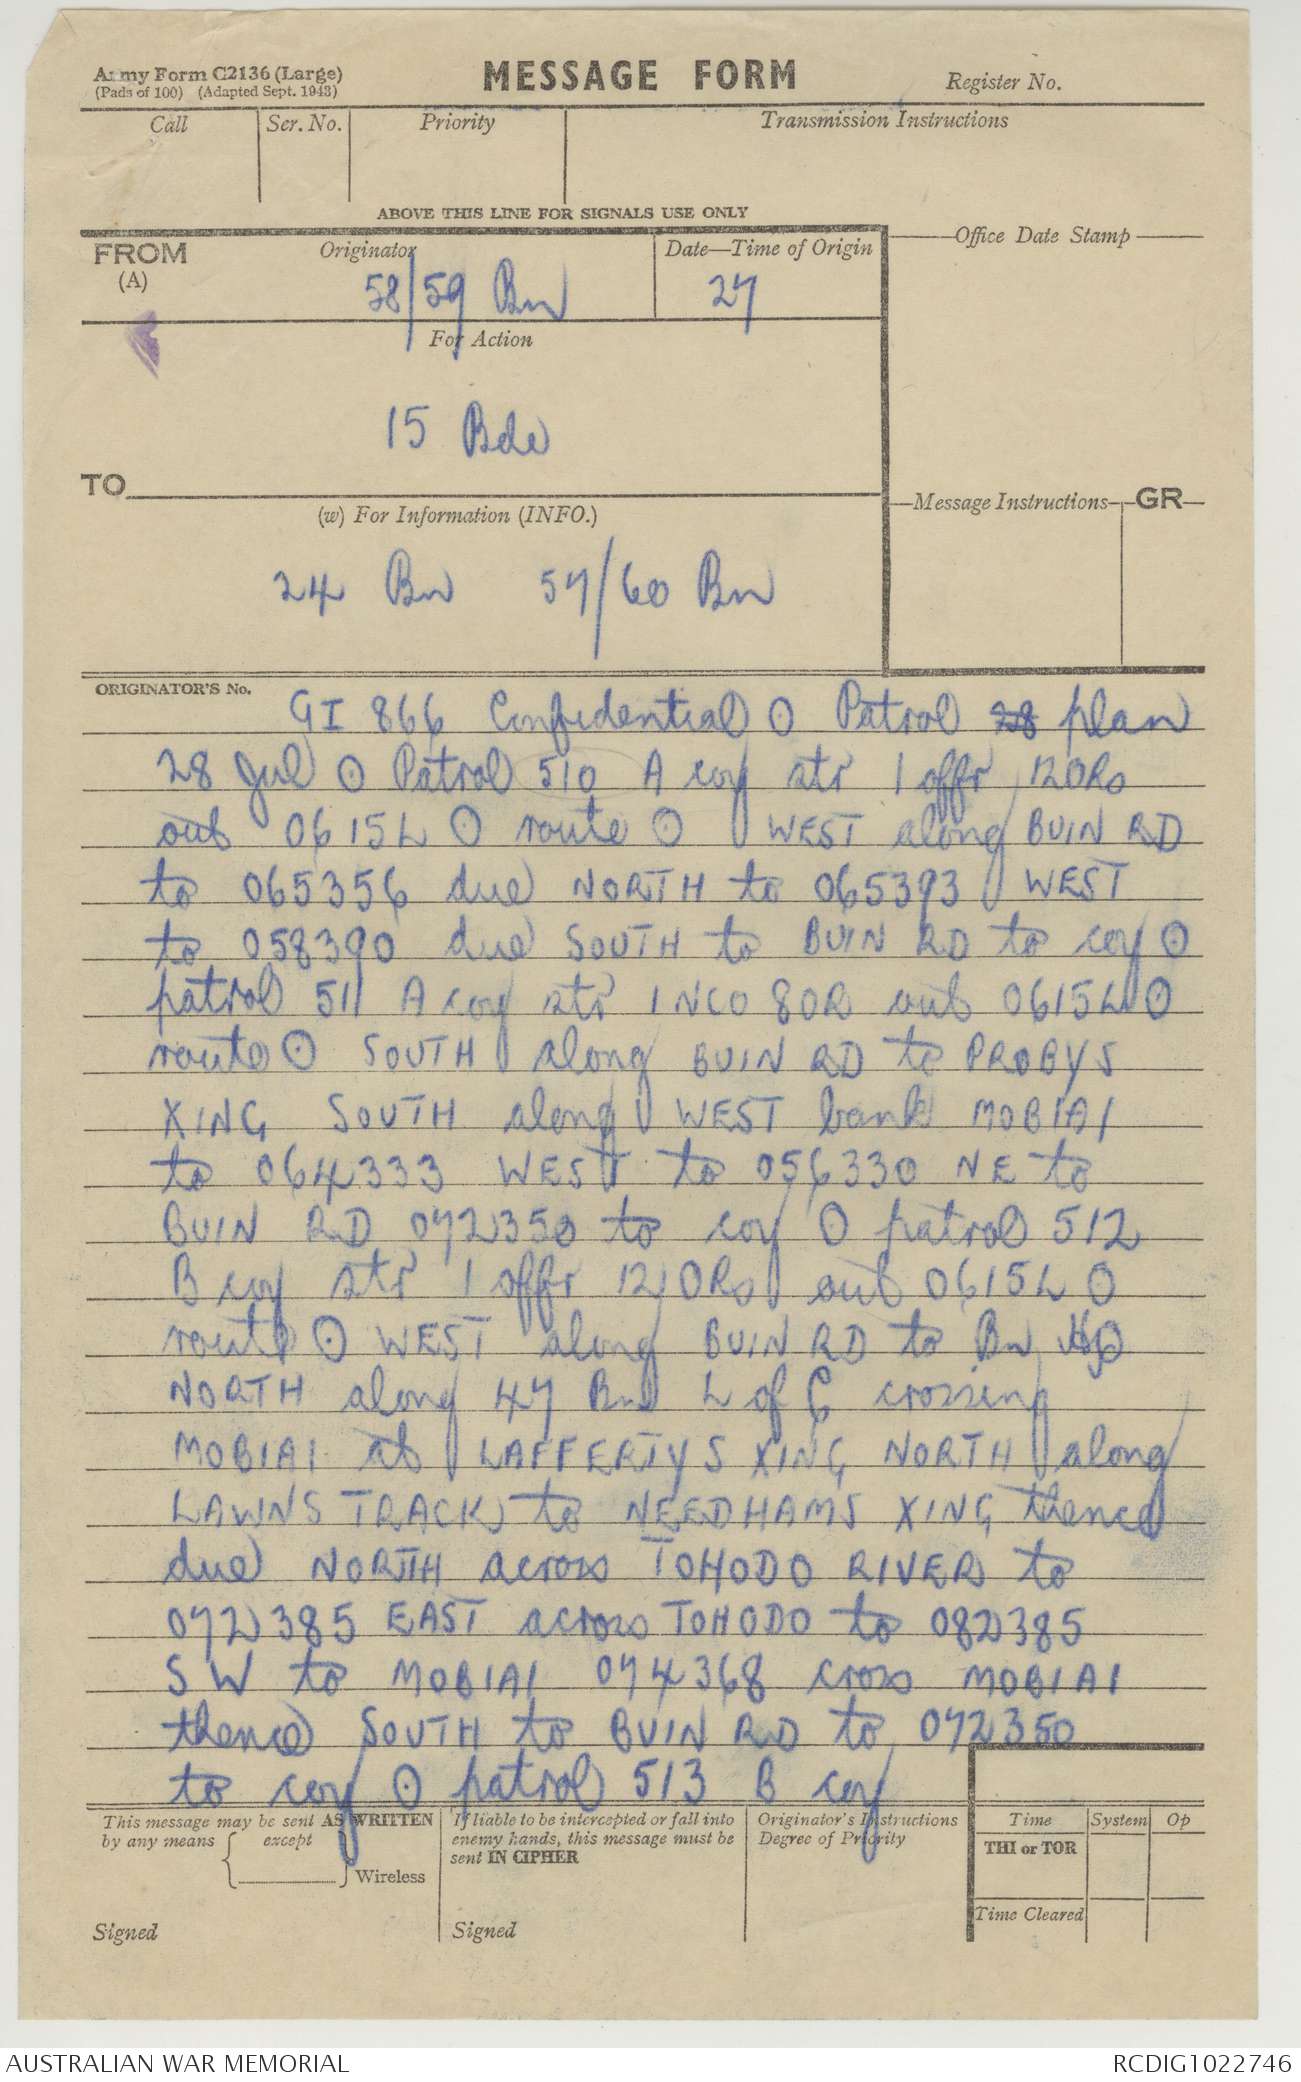 Army Form C2136 (Large)
(Pads of 100) (Adapted Sept. 1943)
MESSAGE FORM
Register No.
Call
Ser. No.
Priority
Transmission Instructions
ABOVE THIS LINE FOR SIGNALS USE ONLY
FROM
(A)
Originator
Date—Time of Origin
Office Date Stamp
58/59 Bn
27
For Action
15 Bde
TO
(w) For Information (INFO.)
Message Instructions
GR
24 Bn 57/60 Bn
ORIGINATOR'S No.
GI 866 Confidential ⊙ Patrol 28 plan
28 Jul ⊙ Patrol 510 A coy str 1 offr 12 ORs
out 0615L ⊙ route ⊙ WEST along BUIN RD
to 065356 due NORTH to 065393 WEST
to 058390 due SOUTH to BUIN RD to coy ⊙
patrol 511 A coy str 1 NCO 8 OR out 0615L ⊙
route ⊙ SOUTH along BUIN RD to PROBYS
XING SOUTH along WEST bank MOBIAI
to 064333 WEST to 056330 NE to
BUIN RD 072350 to coy ⊙ patrol 512
B coy str 1 offr 12 ORs out 0615L ⊙
route ⊙ WEST along BUIN RD to Bn HQ
NORTH along 47 Bn L of C crossing
MOBIAI at LAFFERTYS XING NORTH along
LAWNS TRACK to NEEDHAMS XING thence
due NORTH across TOHODO RIVER to
072385 EAST across TOHODO to 082385
SW to MOBIAI 074368 cross MOBIAI
thence SOUTH to BUIN RD to 072350
to coy ⊙ patrol 513 B coy
This message may be sent AS WRITTEN
by any means except
Wireless
Signed
If liable to be intercepted or fall into
enemy hands, this message must be
sent IN CIPHER
Signed
Originator's Instructions
Degree of Priority
Time
System
Op
THI or TOR
Time Cleared
AUSTRALIAN WAR MEMORIAL
RCDIG1022746